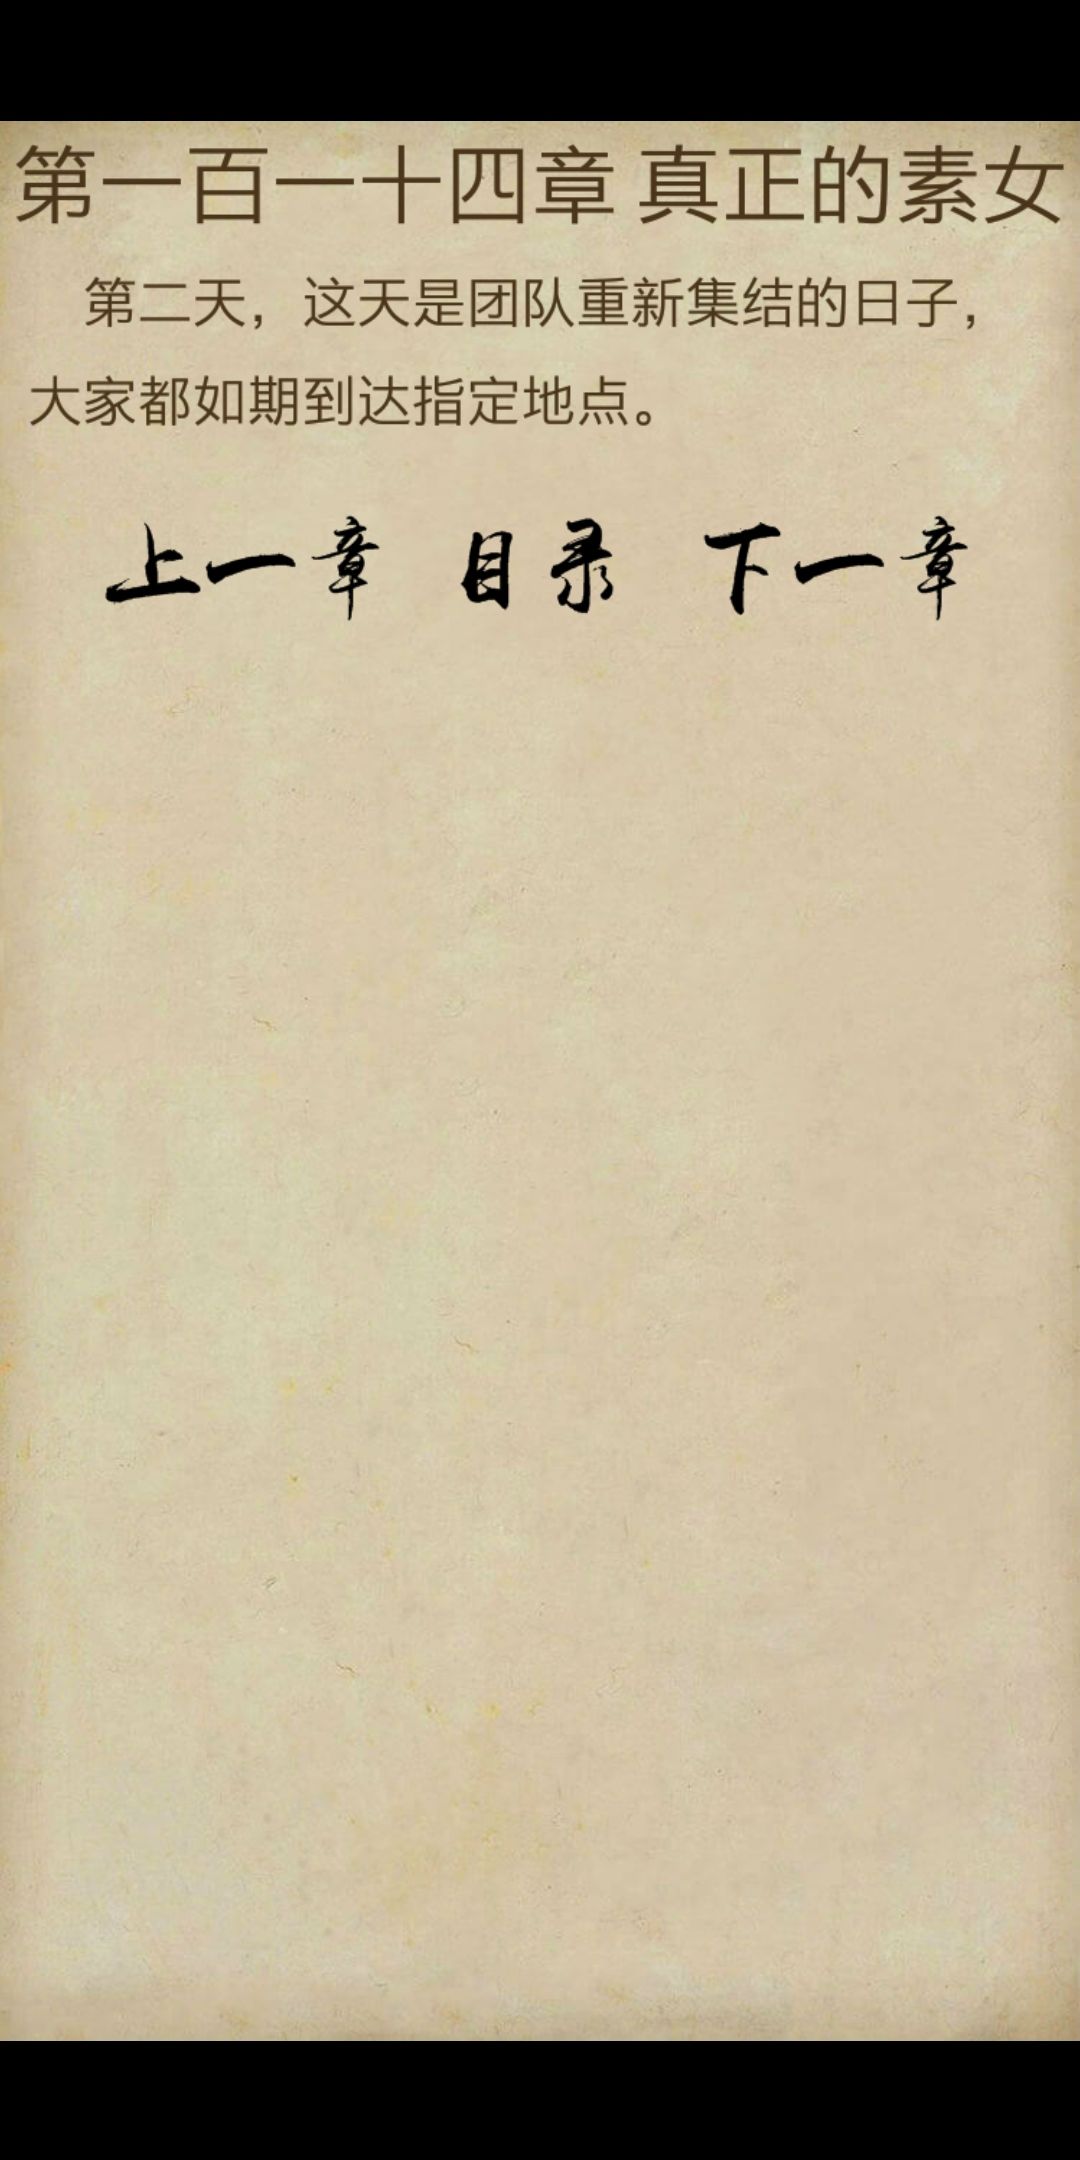 第一百一十四章 真正的素女
第二天，这天是团队重新集结的日子，
大家都如期到达指定地点。
上一章 目录 下一章